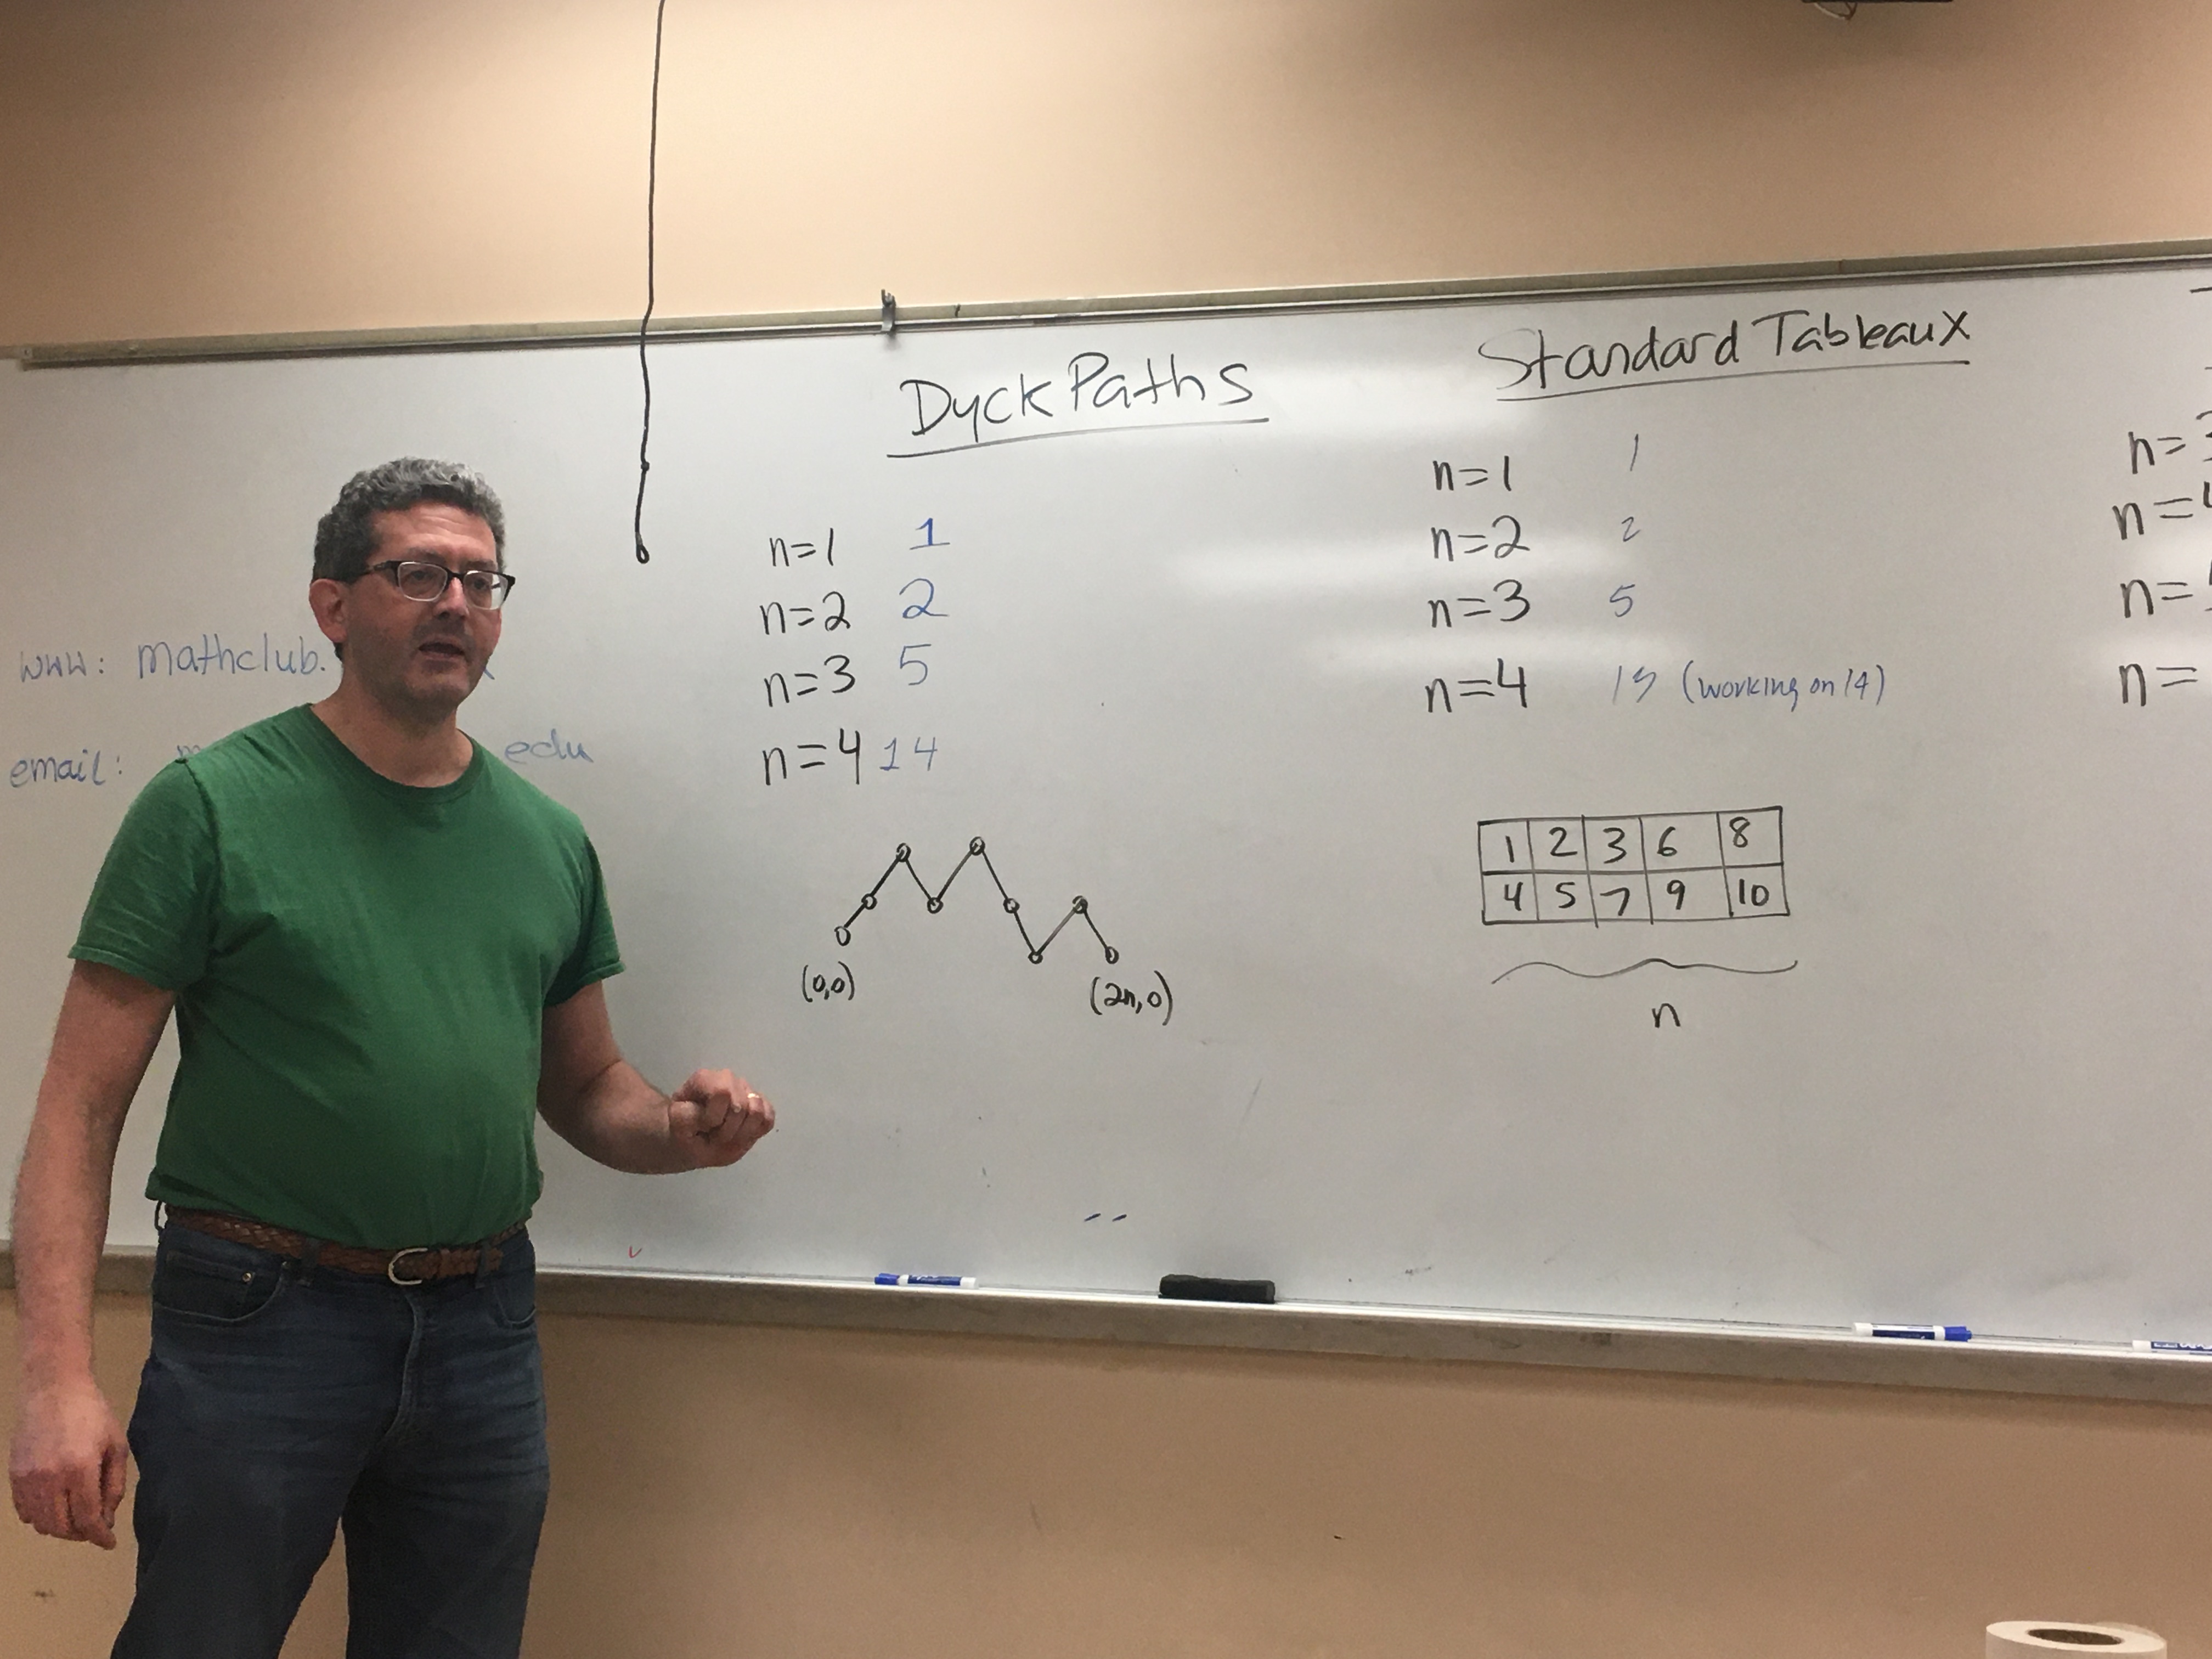 www: mathclub.
email: m edu
Dyck Paths
n=1 1
n=2 2
n=3 5
n=4 14
(0,0)
(2n,0)
Standard Tableaux
n=1 1
n=2 2
n=3 5
n=4 13 (working on 14)
1 2 3 6 8
4 5 7 9 10
n
n=3
n=4
n=
n=